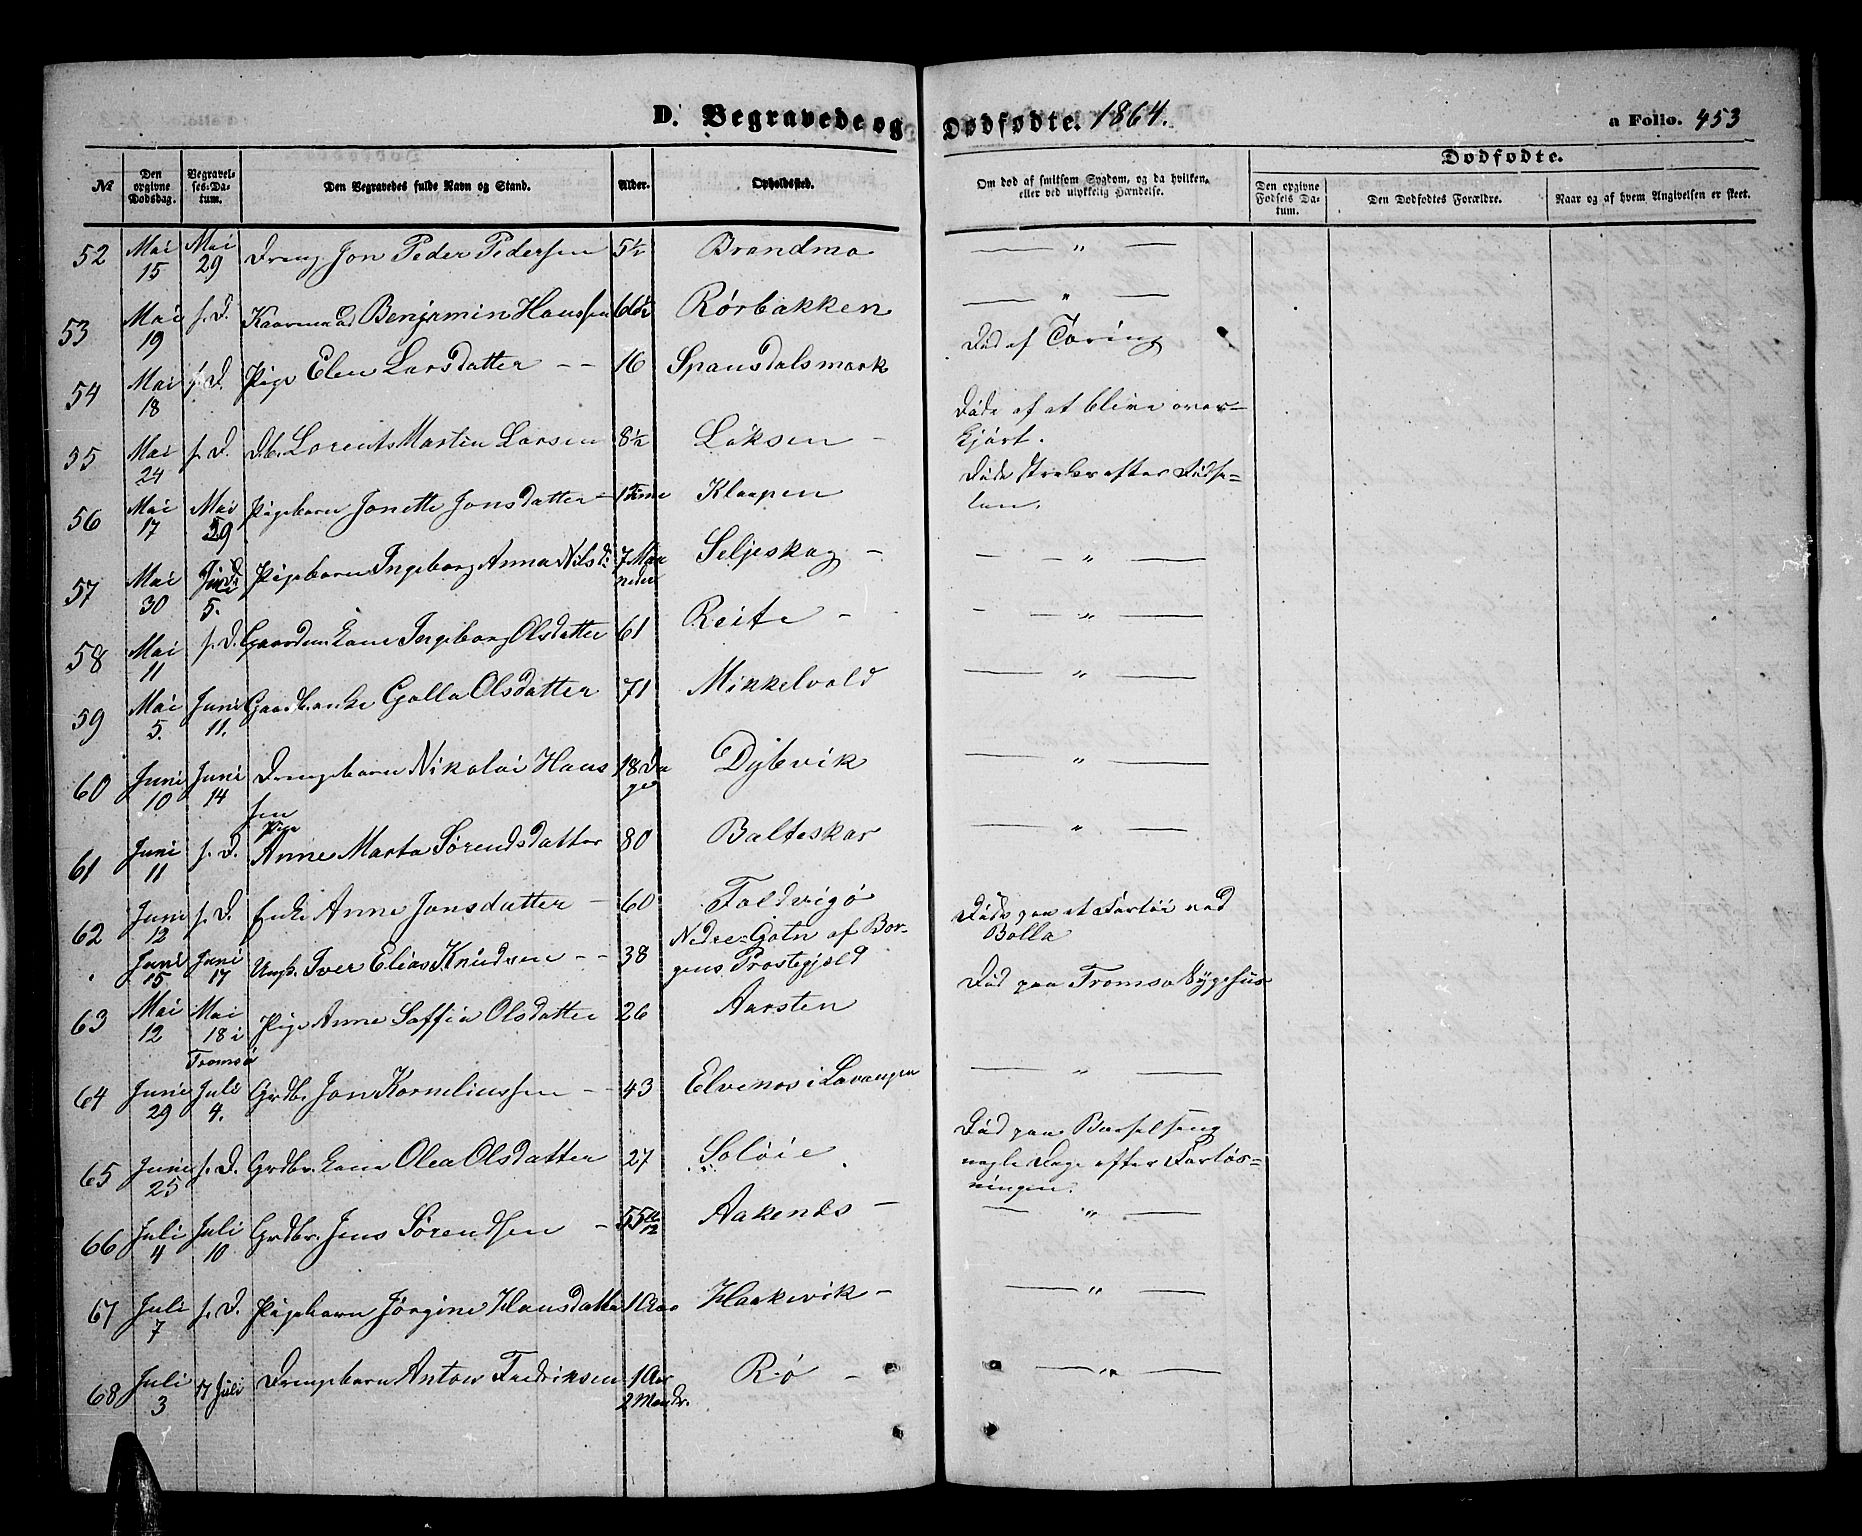 D. Begravede og Dødfødte. 1864. a Folio. 453
Dødfødte.
No. Den opgivne Dødsdag. Begravelses-Datum. Den Begravedes fulde Navn og Stand. Alder. Opholdssted. Om død af smitsom Sygdom, og da hvilken, eller ved ulykkelig Hændelse. Den opgivne Fødsels Datum. Den Dødfødtes Forældre. Naar og af hvem Angivelsen er skeet.
52 Mai 15 Mai 29 Dreng Jon Peder Pedersen 5½ Brandmo — " —
53 Mai 19 s. D. Benjamin Hanssen Rørbakken — " —
54 Mai 18 s. D. Pige Elen Larsdatter - - 16 Spansdalsmark Død af Tæring
55 Mai 24 s. D. Db. Lorents Martin Larsen 8½ Løksen - Døde af at blive over-
kjørt.
56 Mai 17 Mai 29 Pigebarn Jonette Jonsdatter - 1 Time Klaapen Døde strax efter Fødse-
len.
57 Mai 30 Juni 5. Pigebarn Ingeborg Anna Nilsd: 7 Maa
neder Seljeskog - — " —
58 Mai 11 s. D. Ingeborg Olsdatter 61 Reite - — " —
59 Mai 5. Juni 11. Golla Olsdatter 71 Mikkelvold — " —
60 Juni 10 Juni 14 Drengebarn Nikolai Hans
sen 18 Da
ge Dybvik — " —
61 Juni 11 s. D. Pige
Anne Marta Sørendsdatter 80 Balteskar — " —
62 Juni 12 s. D. Enke Anne Jonsdatter - 60 Foldvigø
. Juni 15. Juni 17 Ungk. Iver Elias Knudsen - - 38 Nedre-Gotn af Bor-
gens Prostegjeld Døde paa et Fartøi ved
Bolla
63 Mai 12 Mai 18 i
Tromsø Pige Anne Saffia Olsdatter 26 Aarsten Død paa Tromsø Sygehus
64 Juni 29 Juli 4. Grdbr. Jon Korneliussen - 43 Elvenes i Lavangen — " —
65 Juni 25 s. D. Grdbr. Kone Olea Olsdatter 27 Soløie Død paa Barselseng
nogle Dage efter Forløs-
ningen.
66 Juli 4 Juli 10 Grdbr. Jens Sørendsen - Aakenes - — " —
67 Juli 7 s. D. Pigebarn Jørgine Hansdatter 1 Aar Haakevik - — " —
68 Juli 3 17 Juli Drengebarn Anton Fredriksen 1 Aar
2 Maadr. Rø - — " —